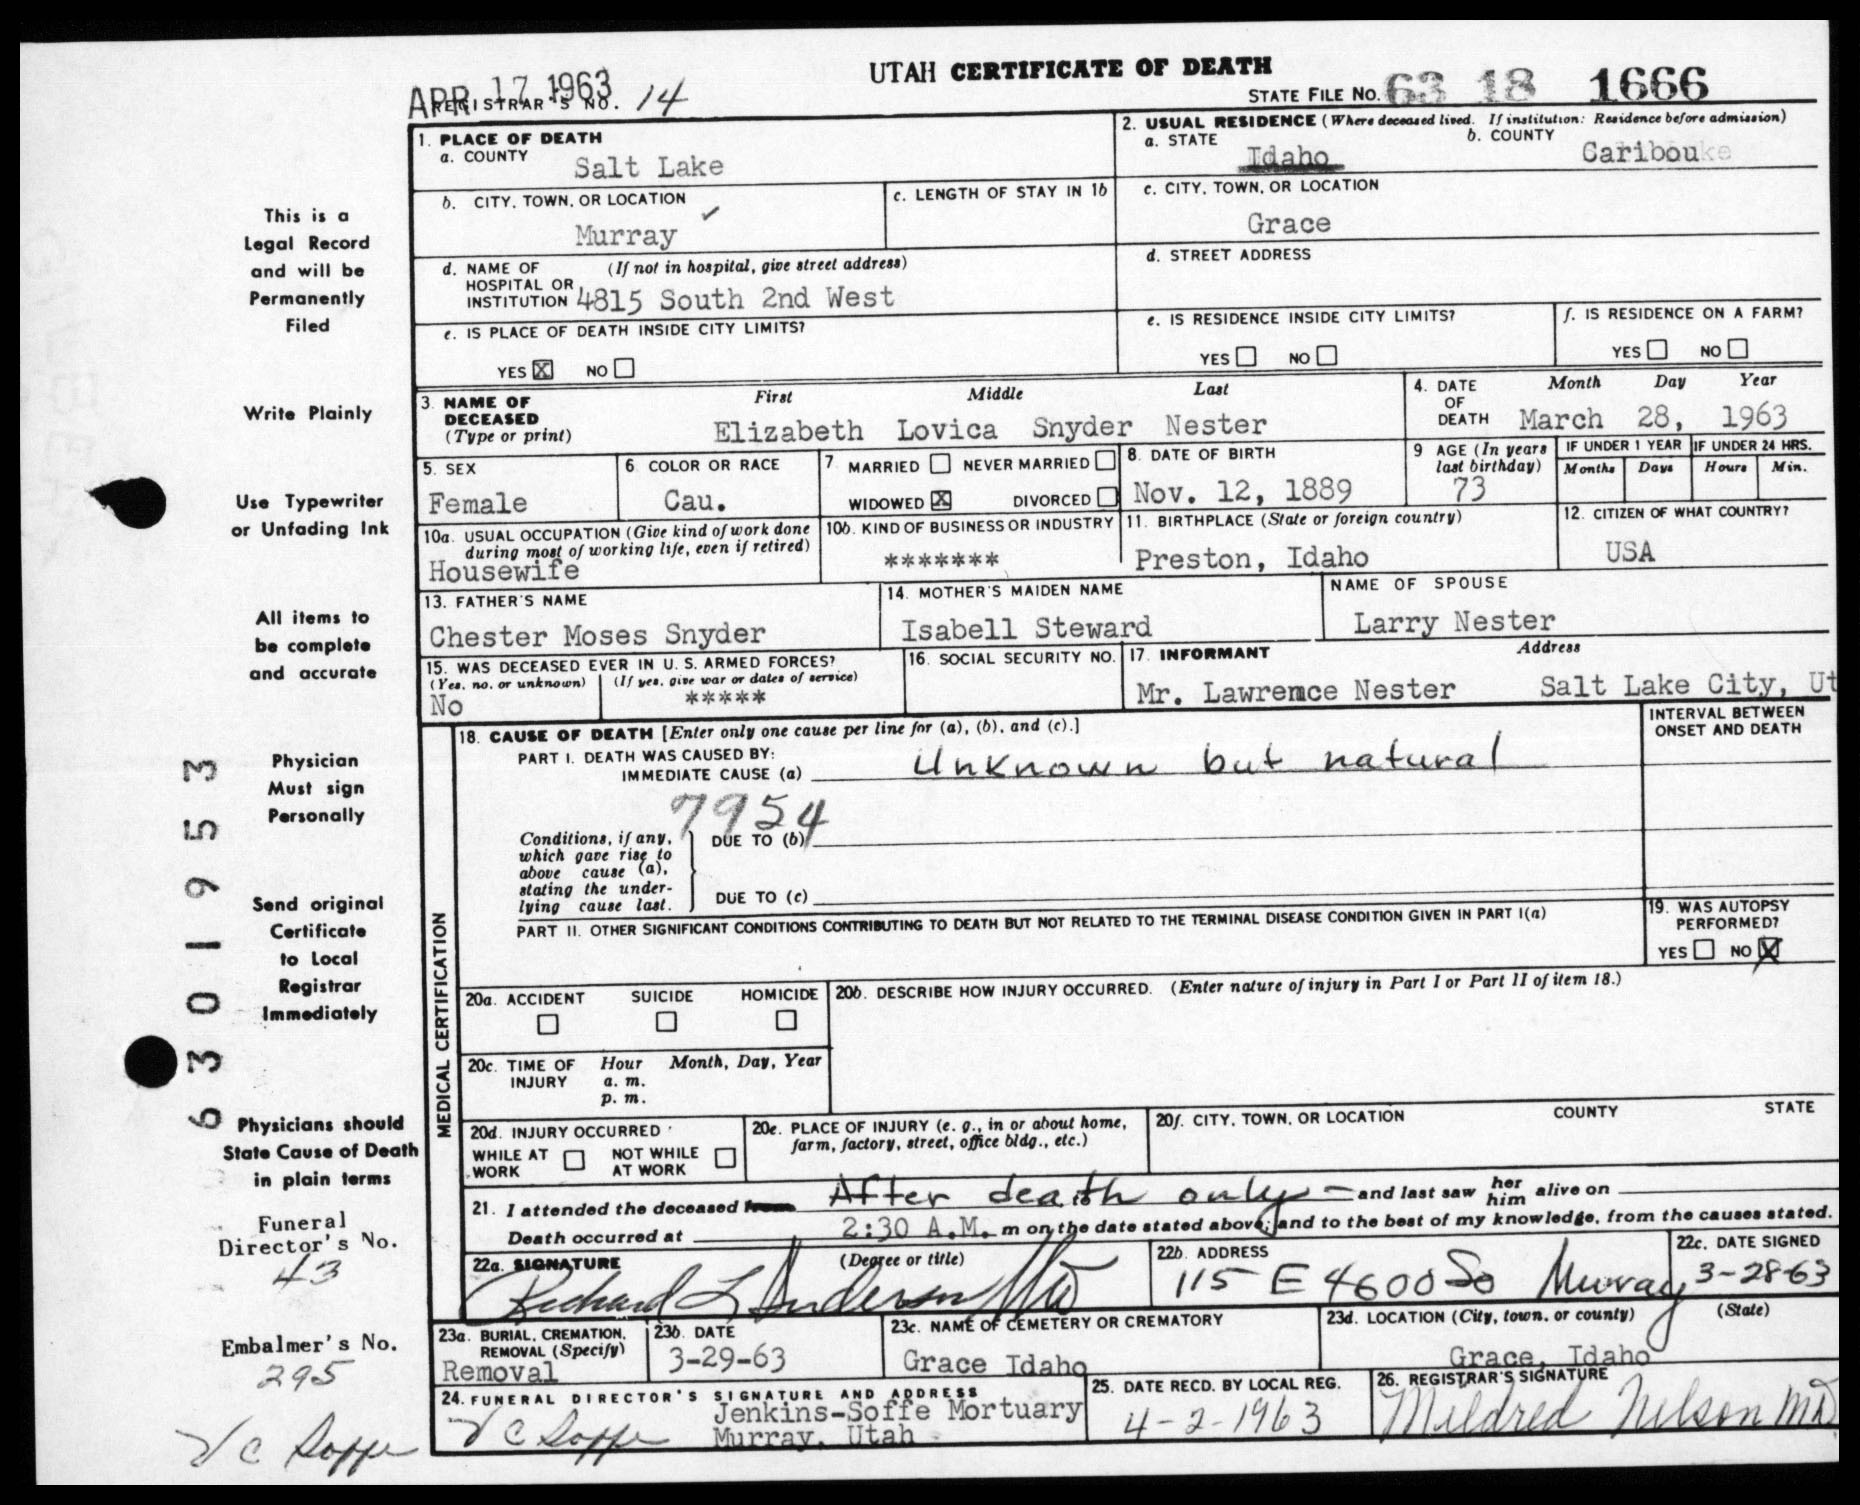 UTAH CERTIFICATE OF DEATH
APR 17 1963
REGISTRAR'S NO. 14
STATE FILE NO. 63 18 1666
1. PLACE OF DEATH
a. COUNTY
Salt Lake
2. USUAL RESIDENCE (Where deceased lived. If institution: Residence before admission)
a. STATE
Idaho
b. COUNTY
Caribou
b. CITY, TOWN, OR LOCATION
Murray ✓
c. LENGTH OF STAY IN 1b
c. CITY, TOWN, OR LOCATION
Grace
d. NAME OF HOSPITAL OR INSTITUTION
(If not in hospital, give street address)
4815 South 2nd West
d. STREET ADDRESS
e. IS PLACE OF DEATH INSIDE CITY LIMITS?
YES ☒ NO ☐
e. IS RESIDENCE INSIDE CITY LIMITS?
YES ☐ NO ☐
f. IS RESIDENCE ON A FARM?
YES ☐ NO ☐
3. NAME OF DECEASED
(Type or print)
First Middle Last
Elizabeth Lovica Snyder Nester
4. DATE OF DEATH
Month Day Year
March 28, 1963
5. SEX
Female
6. COLOR OR RACE
Cau.
7. MARRIED ☐ NEVER MARRIED ☐
WIDOWED ☒ DIVORCED ☐
8. DATE OF BIRTH
Nov. 12, 1889
9 AGE (In years last birthday)
73
IF UNDER 1 YEAR
Months Days
IF UNDER 24 HRS.
Hours Min.
10a. USUAL OCCUPATION (Give kind of work done during most of working life, even if retired)
Housewife
10b. KIND OF BUSINESS OR INDUSTRY
*******
11. BIRTHPLACE (State or foreign country)
Preston, Idaho
12. CITIZEN OF WHAT COUNTRY?
USA
13. FATHER'S NAME
Chester Moses Snyder
14. MOTHER'S MAIDEN NAME
Isabell Steward
NAME OF SPOUSE
Larry Nester
15. WAS DECEASED EVER IN U. S. ARMED FORCES?
(Yes, no, or unknown)
No
(If yes, give war or dates of service)
*****
16. SOCIAL SECURITY NO.
17. INFORMANT
Address
Mr. Lawremce Nester Salt Lake City, Ut
MEDICAL CERTIFICATION
18. CAUSE OF DEATH [Enter only one cause per line for (a), (b), and (c).]
PART I. DEATH WAS CAUSED BY:
IMMEDIATE CAUSE (a) Unknown but natural
INTERVAL BETWEEN ONSET AND DEATH
7954
Conditions, if any, which gave rise to above cause (a), stating the underlying cause last.
DUE TO (b)
DUE TO (c)
PART II. OTHER SIGNIFICANT CONDITIONS CONTRIBUTING TO DEATH BUT NOT RELATED TO THE TERMINAL DISEASE CONDITION GIVEN IN PART I(a)
19. WAS AUTOPSY PERFORMED?
YES ☐ NO ☒
20a. ACCIDENT SUICIDE HOMICIDE
☐ ☐ ☐
20b. DESCRIBE HOW INJURY OCCURRED. (Enter nature of injury in Part I or Part II of item 18.)
20c. TIME OF INJURY
Hour Month, Day, Year
a. m.
p. m.
20d. INJURY OCCURRED
WHILE AT WORK ☐ NOT WHILE AT WORK ☐
20e. PLACE OF INJURY (e. g., in or about home, farm, factory, street, office bldg., etc.)
20f. CITY, TOWN, OR LOCATION COUNTY STATE
21. I attended the deceased from After death only — and last saw her him alive on
Death occurred at 2:30 A.M. m on the date stated above; and to the best of my knowledge, from the causes stated.
22a. SIGNATURE
(Degree or title)
Richard L Anderson MD
22b. ADDRESS
115 E 4600 So Murray
22c. DATE SIGNED
3-28-63
23a. BURIAL, CREMATION, REMOVAL (Specify)
Removal
23b. DATE
3-29-63
23c. NAME OF CEMETERY OR CREMATORY
Grace Idaho
23d. LOCATION (City, town, or county) (State)
Grace, Idaho
24. FUNERAL DIRECTOR'S SIGNATURE AND ADDRESS
V C Soffe
Jenkins-Soffe Mortuary
Murray, Utah
25. DATE RECD. BY LOCAL REG.
4-2-1963
26. REGISTRAR'S SIGNATURE
Mildred Nelson MD
This is a
Legal Record
and will be
Permanently
Filed
Write Plainly
Use Typewriter
or Unfading Ink
All items to
be complete
and accurate
Physician
Must sign
Personally
Send original
Certificate
to Local
Registrar
Immediately
Physicians should
State Cause of Death
in plain terms
Funeral
Director's No.
43
Embalmer's No.
295
V C Soffe
6301953